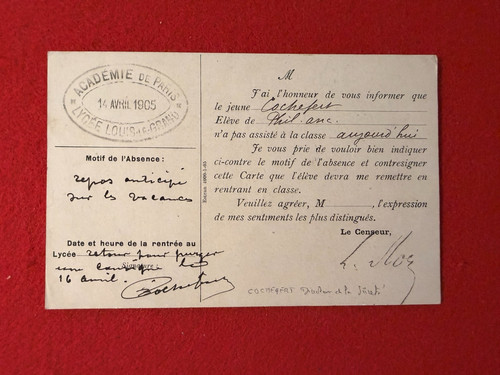 ACADÉMIE DE PARIS
14 AVRIL 1905
LYCÉE LOUIS-LE-GRAND
Motif de l'Absence :
repos anticipé
sur les vacances
Date et heure de la rentrée au
Lycée retour pour purger
Signature
16 avril. Cochefert
M
J'ai l'honneur de vous informer que
le jeune Cochefert
Elève de Phil. anc.
n'a pas assisté à la classe aujourd'hui
Je vous prie de vouloir bien indiquer
ci-contre le motif de l'absence et contresigner
cette Carte que l'élève devra me remettre en
rentrant en classe.
Veuillez agréer, M , l'expression
de mes sentiments les plus distingués.
Le Censeur,
COCHEFERT